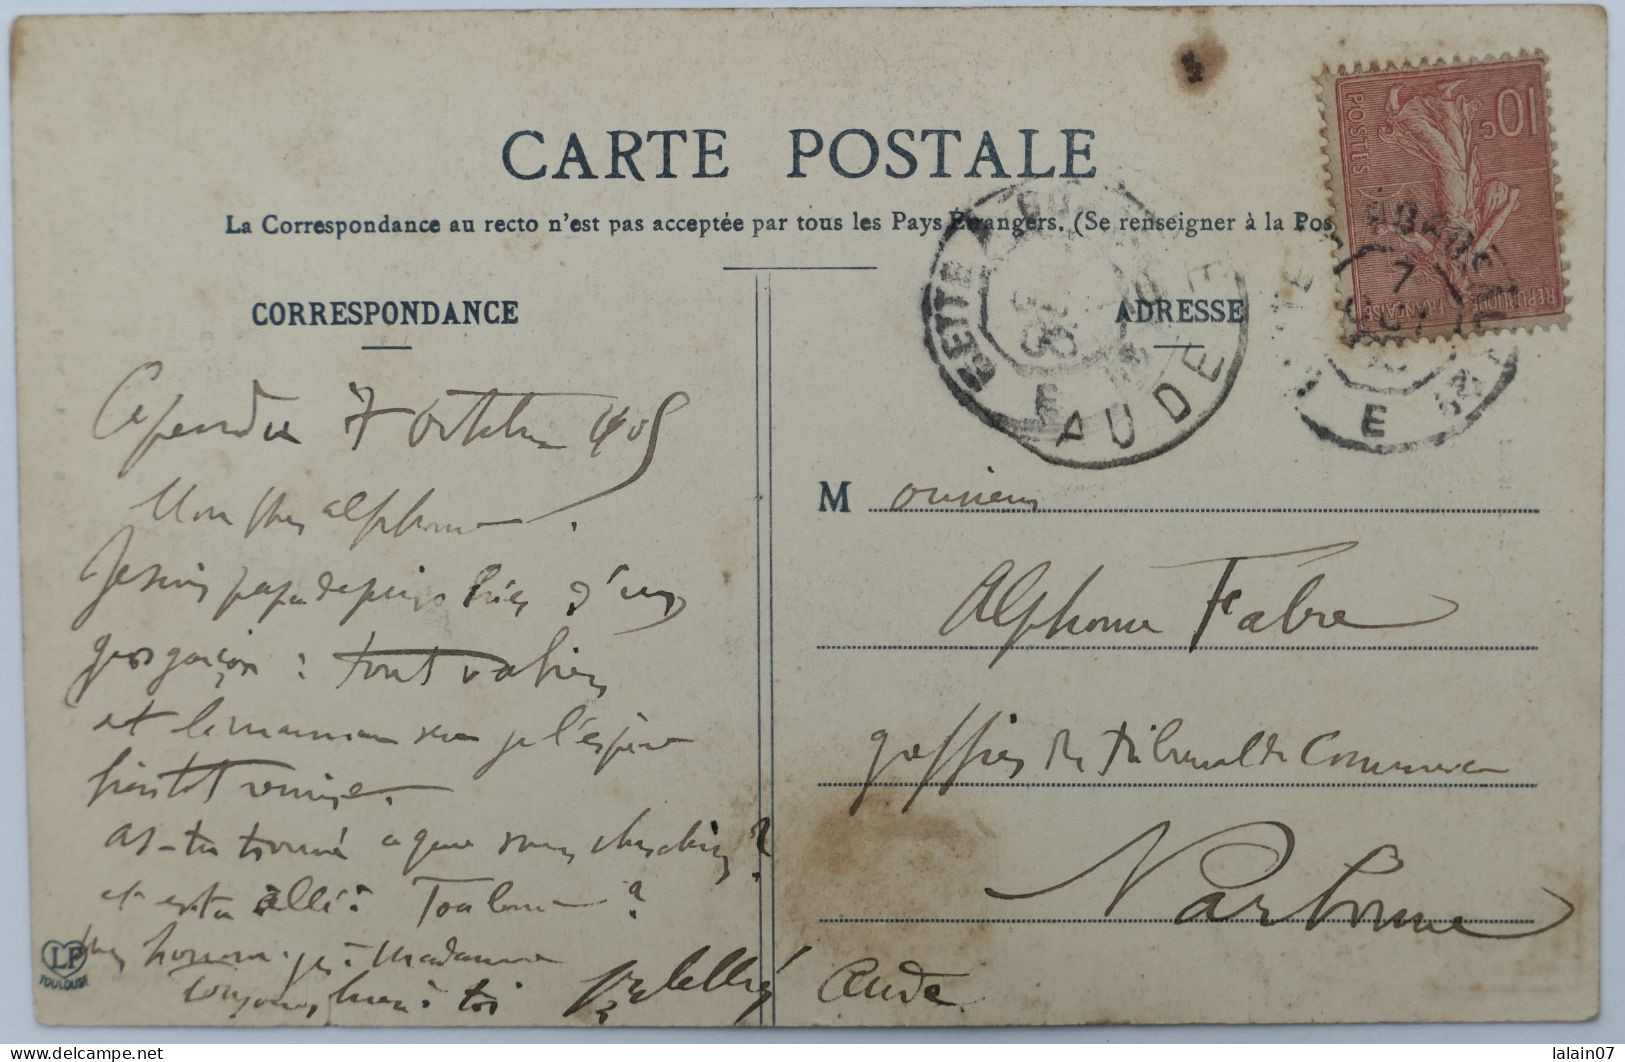 CARTE POSTALE
La Correspondance au recto n'est pas acceptée par tous les Pays Etrangers. (Se renseigner à la Pos
CORRESPONDANCE
Capendu 7 Octobre 1905
Mon cher Alphonse.
Je suis papa depuis hier d'un
gros garçon : tout va bien
et la maman sera je l'espère
bientôt remise.
As-tu trouvé ce que vous cherchiez ?
et es tu allé à Toulouse ?
Mes hommages à Madame
Toujours bien à toi
LP
TOULOUSE
ADRESSE
Monsieur
Alphonse Fabre
greffier du tribunal de Commerce
Narbonne
Aude
10c
POSTES
REPUBLIQUE FRANÇAISE
CETTE
AUDE
E
7
OCT
E
www.delcampe.net
lalain07